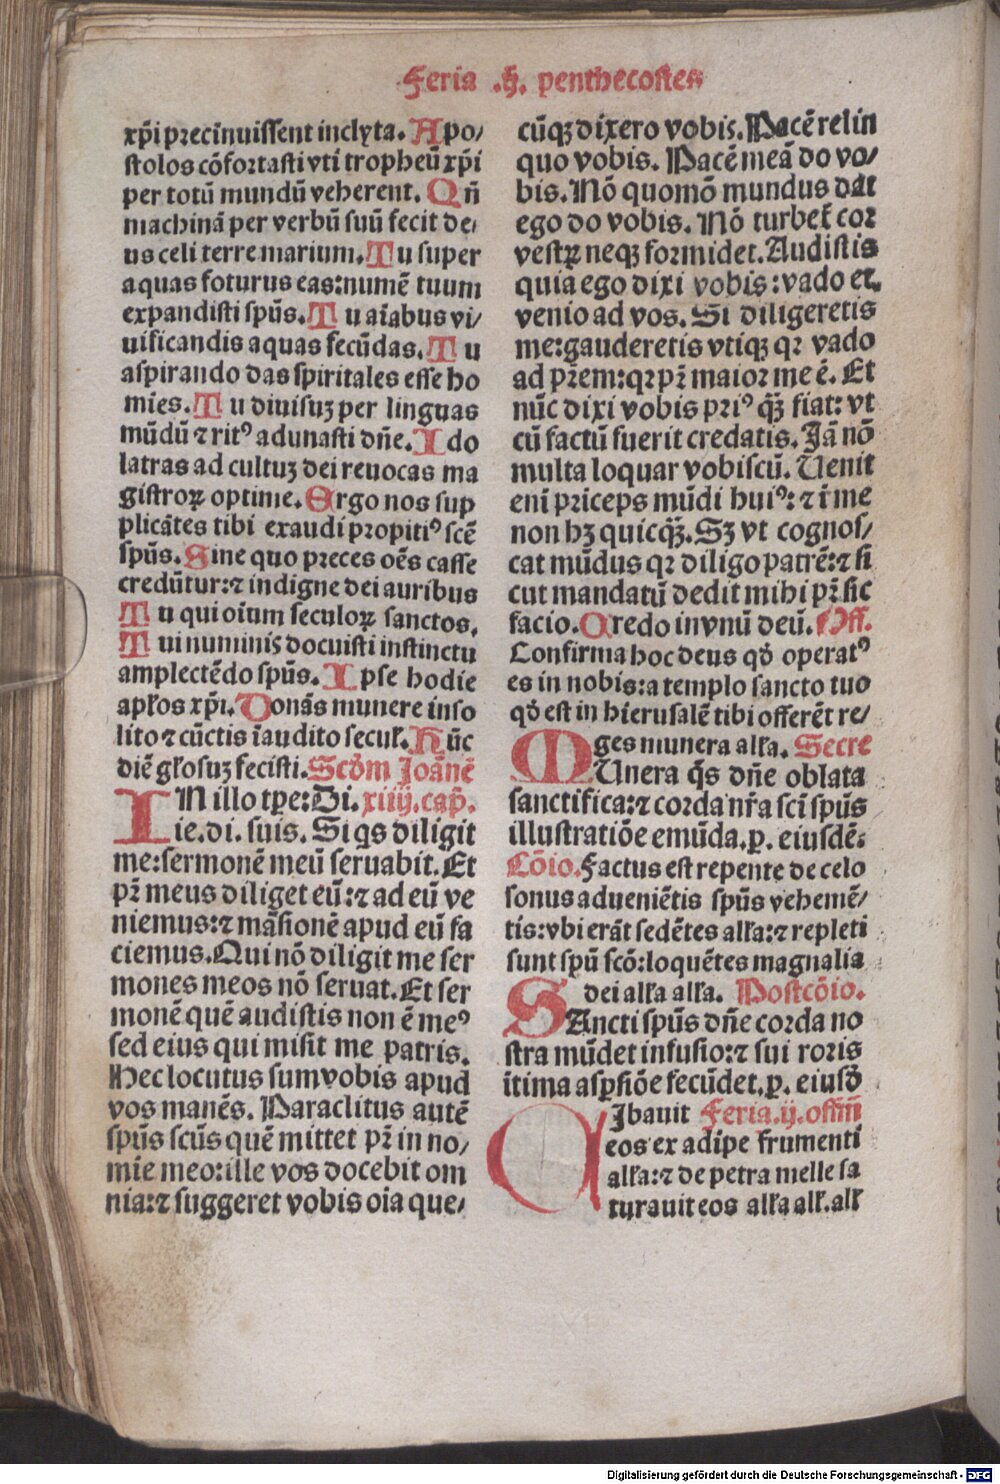 Feria .ij. penthecostes
xp̄i precīnuissent inclyta. Apo/
stolos cōfortasti vti tropheū xp̄i
per totū mundū veherent. Qn̄
machinā per verbū suū fecit de/
us celi terre marium. Tu super
aquas foturus eas: numē tuum
expandisti spūs. Tu aīabus vi/
uificandis aquas fecūdas. Tu
aspirando das spiritales esse ho
mīes. Tu diuisuȝ per linguas
mūdū ⁊ ritꝰ adunasti dn̄e. Ido
latras ad cultuȝ dei reuocas ma
gistroꝝ optime. Ergo nos sup
plicātes tibi exaudi propitiꝰ scē
spūs. Sine quo preces oēs casse
credūtur: ⁊ indigne dei auribus
Tu qui oīum seculoꝝ sanctos.
Tui numinis docuisti instinctu
amplectēdo spūs. Ipse hodie
apłos xp̄i. Donās munere inso
lito ⁊ cūctis īaudito secuł. Hūc
diē głosuȝ fecisti. Scd̄m Joānē
IN illo tp̄e: Di. xiiij. cap̄.
ie. di. suis. Si qs diligit
me: sermonē meū seruabit. Et
pr̄ meus diliget eū: ⁊ ad eū ve
niemus: ⁊ māsionē apud eū fa
ciemus. Qui nō diligit me ser
mones meos nō seruat. Et ser
monē quē audistis non ē meꝰ
sed eius qui misit me patris.
Hec locutus sum vobis apud
vos manēs. Paraclitus autē
spūs scūs quē mittet pr̄ in no/
mīe meo: ille vos docebit om
nia: ⁊ suggeret vobis oīa que/
cūqꝫ dixero vobis. Pacē relin
quo vobis. Pacē meā do vo/
bis. Nō quomō mundus dat
ego do vobis. Nō turbet̄ cor
vestꝝ neqꝫ formidet. Audistis
quia ego dixi vobis: vado et
venio ad vos. Si diligeretis
me: gauderetis vtiqꝫ qꝛ vado
ad pr̄em: qꝛ pr̄ maior me ē. Et
nūc dixi vobis priꝰ qꝫ̄ fiat: vt
cū factū fuerit credatis. Jā nō
multa loquar vobiscū. Uenit
enī prīceps mūdi huiꝰ: ⁊ ī me
non hȝ quicqꝫ̄. Sȝ vt cognos/
cat mūdus qꝛ diligo patrē: ⁊ si
cut mandatū dedit mihi pr̄ sic
facio. Credo in vnū deū. Off.
Confirma hoc deus qd̄ operatꝰ
es in nobis: a templo sancto tuo
qd̄ est in hierusalē tibi offerēt re/
ges munera ałła. Secre
MUnera qs̄ dn̄e oblata
sanctifica: ⁊ corda nr̄a scī spūs
illustratiōe emūda. p. eiusdē:
Cōio. Factus est repente de celo
sonus aduenīetis spūs vehemē/
tis: vbi erāt sedētes ałła: ⁊ repleti
sunt spū scō: loquētes magnalia
dei ałła ałła. Postcōio.
SAncti spūs dn̄e corda no
stra mūdet infusio: ⁊ sui roris
ītima aspsiōe fecūdet. p. eiusd̄
CIbauit Feria .ij. offim̄
eos ex adipe frumenti
ałła: ⁊ de petra melle sa
turauit eos ałła ał. ał
Digitalisierung gefördert durch die Deutsche Forschungsgemeinschaft - DFG